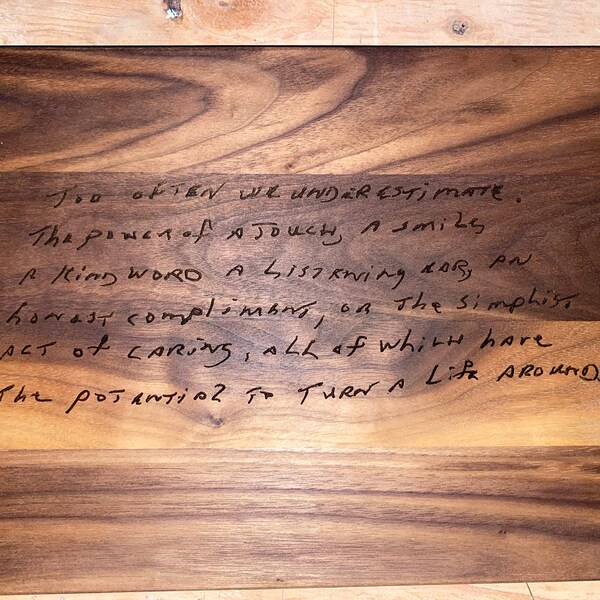 Too often we underestimate.
The power of a touch, a smile
a kind word a listening ear, an
honest compliment, or the simplist
act of caring, all of which have
the potential to turn a life around.